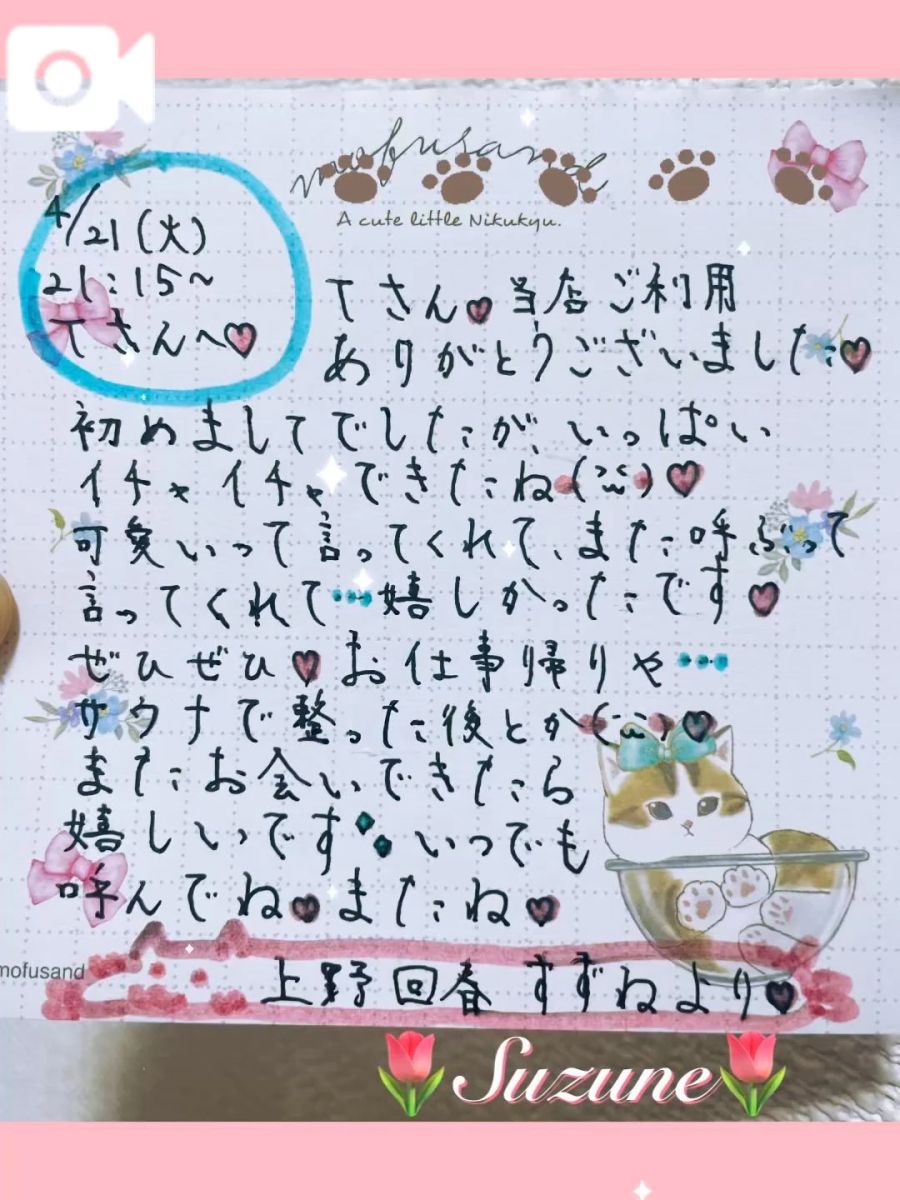 mofusand
A cute little Nikukyu.
4/21(火)
21:15~
Tさんへ♥
Tさん♥当店ご利用
ありがとうございました♥
初めましてでしたが、いっぱい
イチャイチャできたね(¨ω¨)♥
可愛いって言ってくれて、また呼ぶって
言ってくれて…嬉しかったです♥
ぜひぜひ♥お仕事帰りや…
サウナで整った後とか(¨ω¨)♥
またお会いできたら
嬉しいです いつでも
呼んでね♥またね♥
mofusand
上野回春 すずねより♥
Suzune